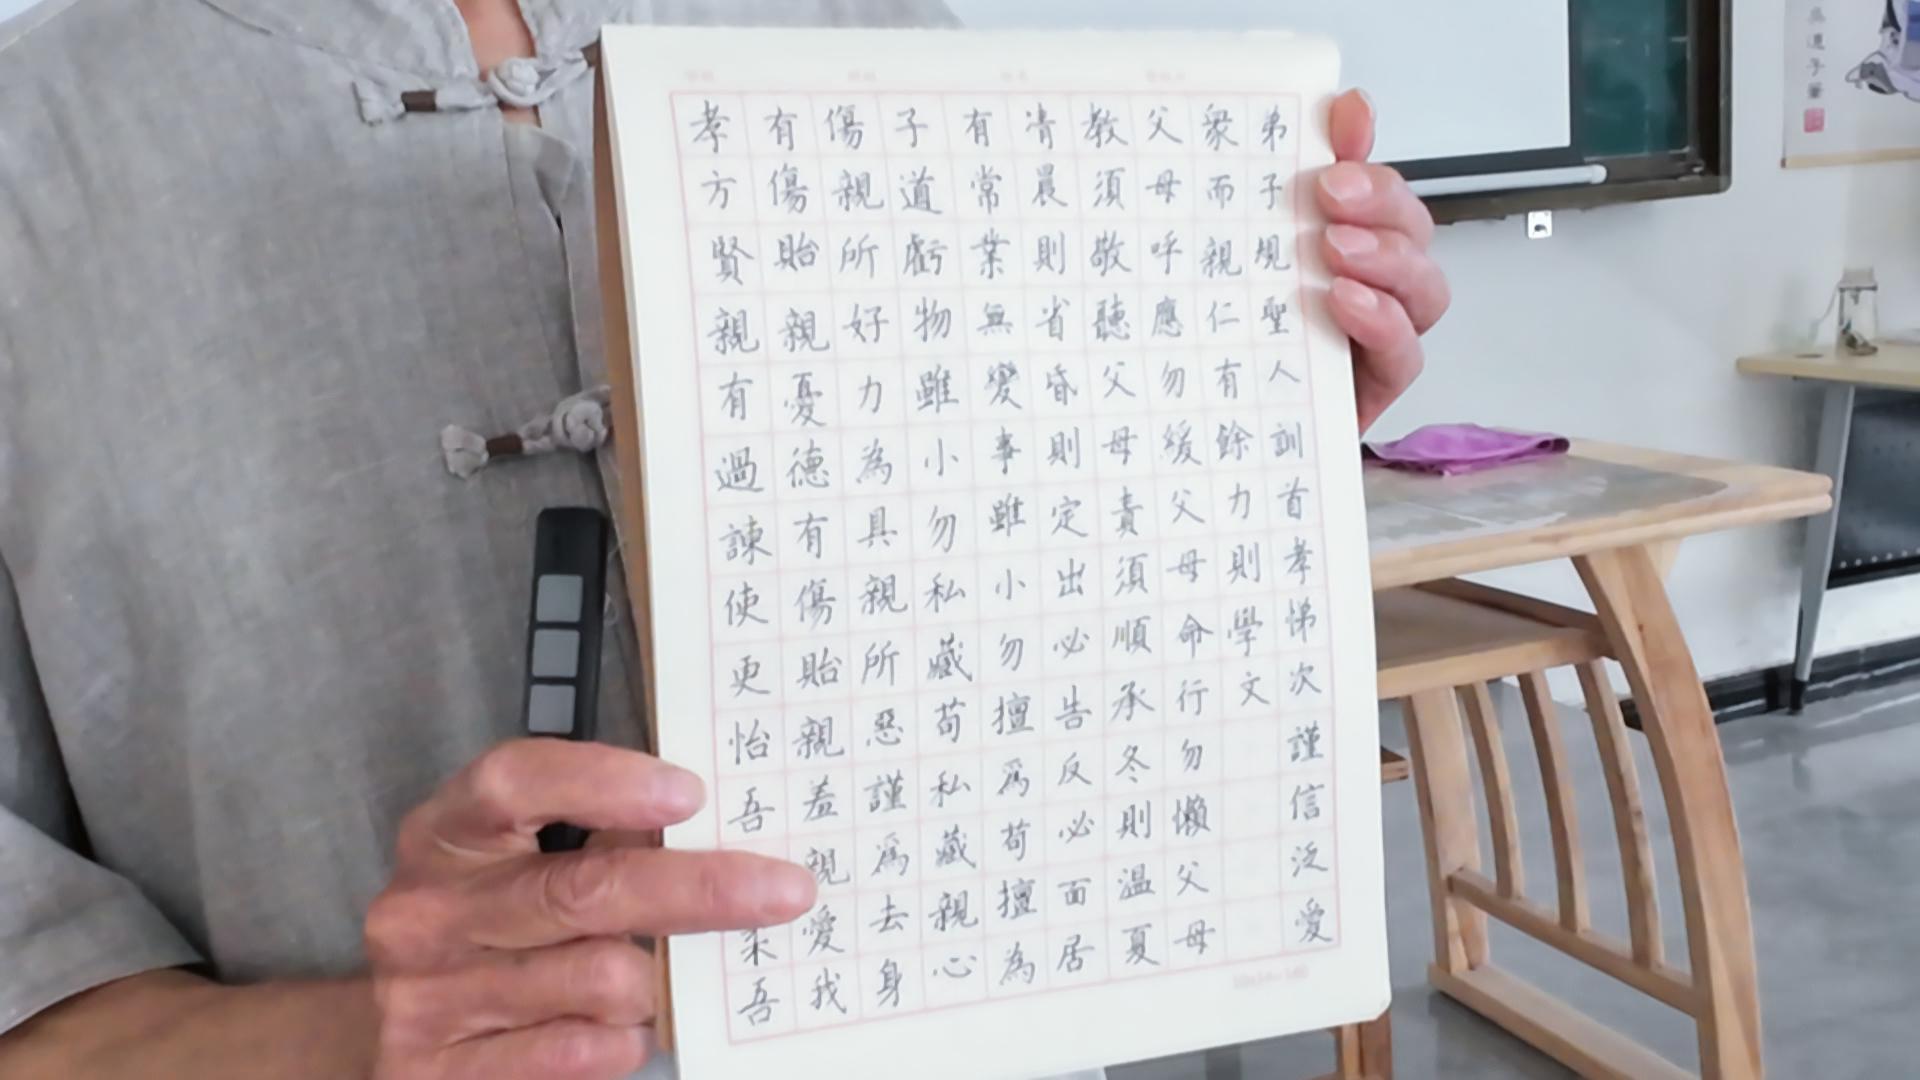 弟子規聖人訓首孝悌次謹信泛愛
衆而親仁有餘力則學文
父母呼應勿緩父母命行勿懶父母
教須敬聽父母責須順承冬則温夏
凊晨則省昏則定出必告反必面居
有常業無變事雖小勿擅爲苟擅為
子道虧物雖小勿私藏苟私藏親心
傷親所好力為具親所惡謹爲去身
有傷貽親憂德有傷貽親羞親愛我
孝方賢親有過諫使更怡吾柔吾
道子筆